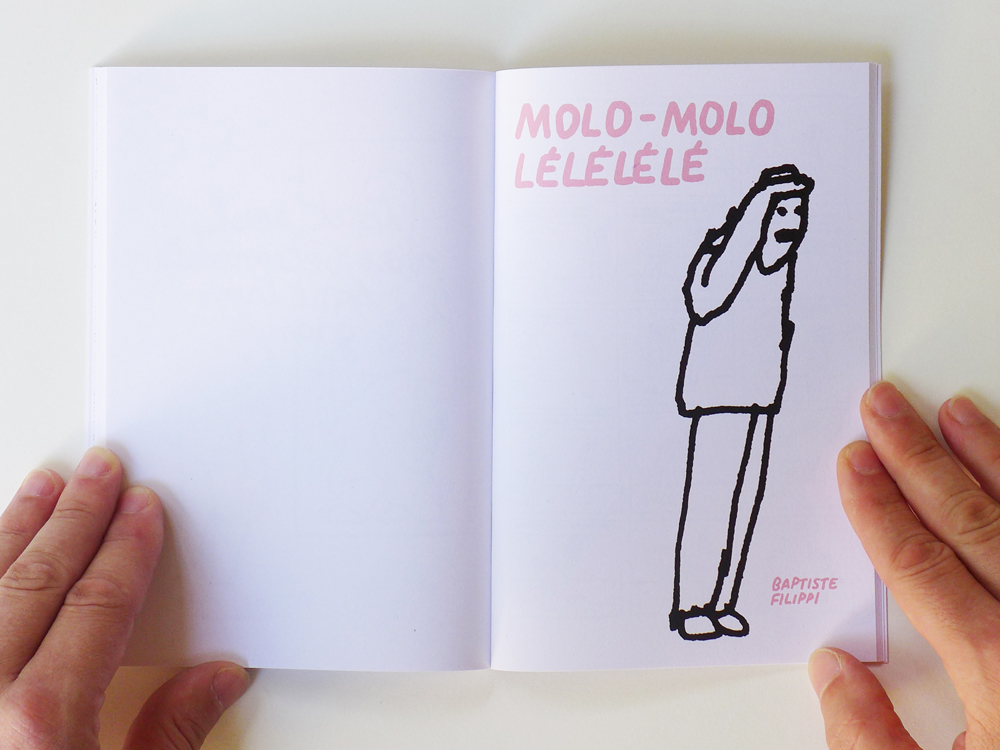 MOLO-MOLO
LÉLÉLÉLÉ
BAPTISTE
FILIPPI